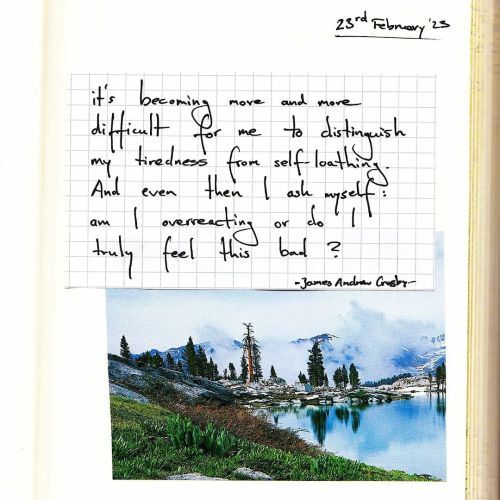 23rd February '23
it's becoming more and more
difficult for me to distinguish
my tiredness from self-loathing.
And even then I ask myself:
am I overreacting or do I
truly feel this bad?
-James Andrew Crosby-